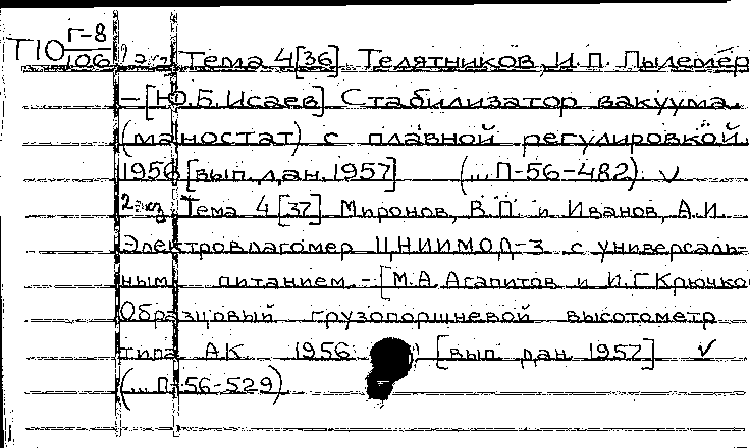 Т10 Г-8/106 1 экз Тема 4[36] Телятников, И.П. Пылемер
—[Ю.Б.Исаев] Стабилизатор вакуума.
(маностат) с плавной регулировкой.
1956 [вып. дан. 1957] (... П-56-482) ✓
2 экз Тема 4 [37] Миронов, В.П. и Иванов, А.И.
Электровлагомер ЦНИИМОД-3 с универсаль-
ным питанием. - [М.А. Агапитов и И.Г. Крючко
Образцовый грузопоршневой высотометр
типа АК 1956 [вып. дан. 1957] ✓
(... П-56-529)